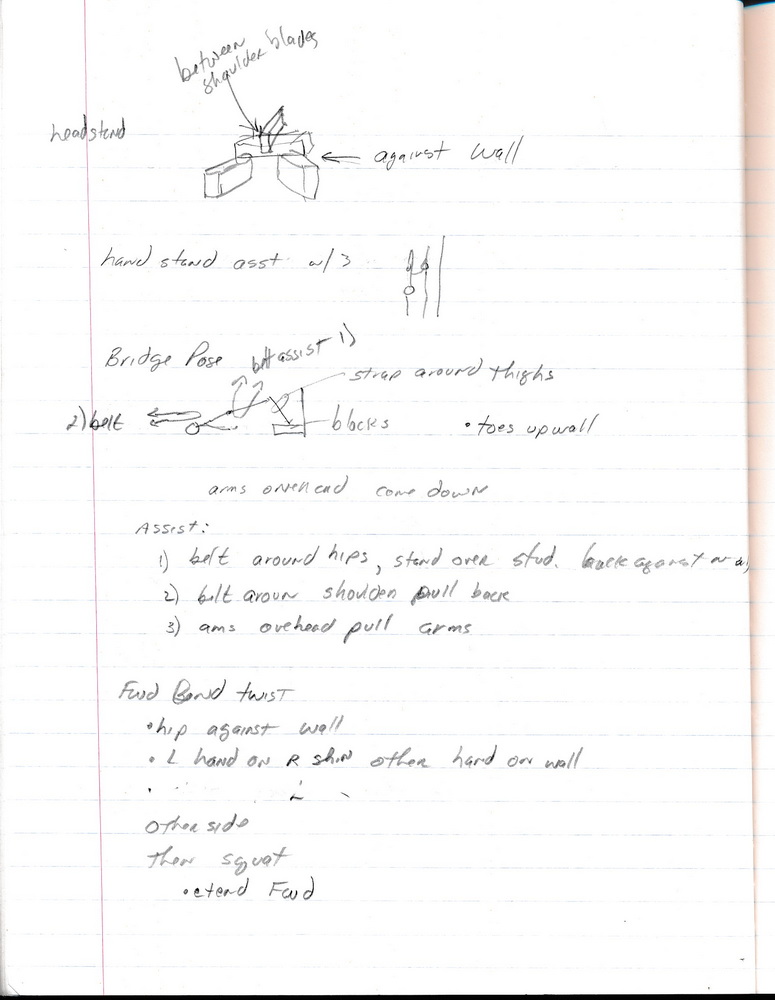 between
shoulder blades
headstand
against wall
hand stand asst w/3
Bridge Pose
belt assist 1)
strap around thighs
2) belt
blocks
• toes up wall
arms overhead come down
Assist:
1) belt around hips, stand over stud. back against
2) belt aroun shoulder pull back
3) ams ovehead pull arms
Fwd Bend twist
• hip against wall
• L hand on R shin other hand on wall
• L
other side
then squat
• etend Fwd